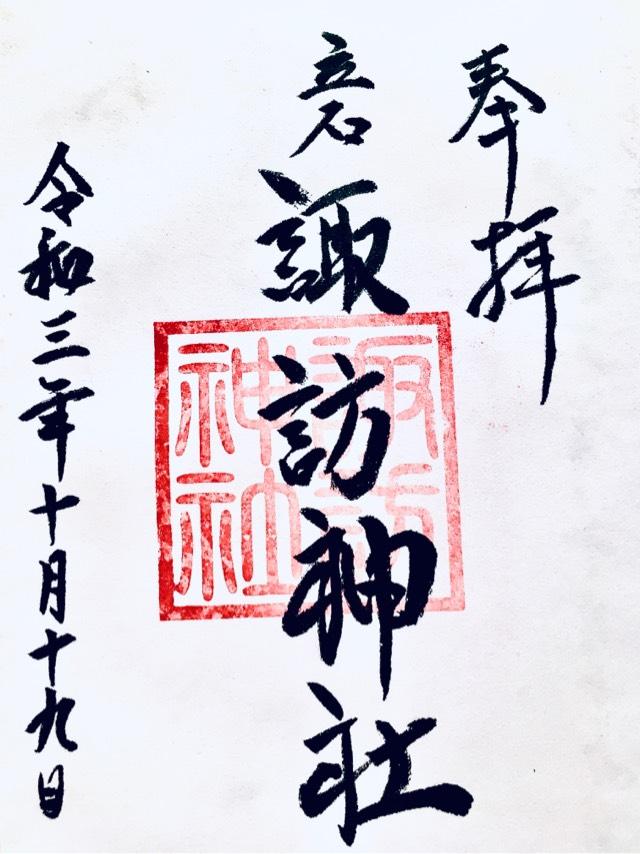 奉拝
立石
諏訪神社
諏訪
神社
令和三年十月十九日